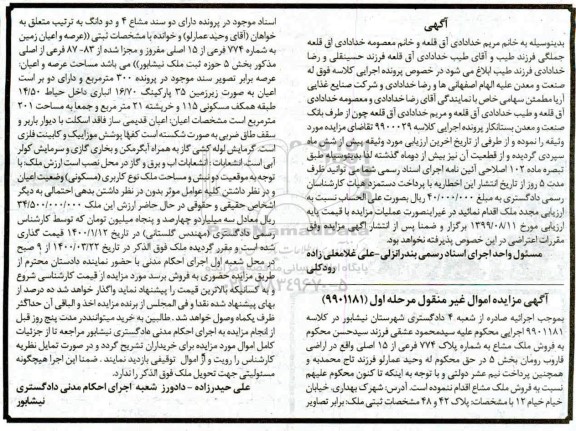 آگهی
بدینوسیله به خانم مریم خدادادی آق قلعه و خانم معصومه خدادادی آق قلعه
جملگی فرزند طیب و آقای طیب خدادادی آق قلعه فرزند حسینقلی و رضا
خدادادی فرزند طیب ابلاغ می شود در خصوص پرونده اجرایی کلاسه فوق له
صنعت و معدن علیه الهام اصفهانی ها و رضا خدادادی و شرکت صنایع غذایی
آریا مطمئن سهامی خاص با نمایندگی آقای رضا خدادادی و معصومه خدادادی
آق قلعه و طیب خدادادی آق قلعه و مریم خدادادی آق قلعه چون از طرف بانک
صنعت و معدن بستانکار پرونده اجرایی کلاسه ۹۹۰۰۰۲۹ تقاضای مزایده مورد
وثیقه را نموده و از طرفی از تاریخ آخرین ارزیابی مورد وثیقه بیش از شش ماه
سپردی گردیده و از قطعیت آن نیز بیش از دوماه گذشته لذا بدینوسیله طبق
تبصره ماده ۱۰۲ اصلاحی آئین نامه اجرای اسناد رسمی شمامی توانید ظرف
مدت ۵ روز از تاریخ انتشار این اخطاریه با پرداخت دستمزد هیات کارشناسان
رسمی دادگستری به مبلغ ۴۰/۰۰۰/۰۰۰ ریال بصورت علی الحساب نسبت به
ارزیابی مجدد ملک اقدام نمائید در غیراینصورت عملیات مزایده با قیمت پایه
ارزیابی مورخ ۱۳۹۹/۰۸/۱۱ برگزار و ضمنا پس از انتشار آگهی مزایده وفق
مقررات اعتراضی در این خصوص پذیرفته نخواهد بود.
مسئول واحد اجرای اسناد رسمی بندرانزلی - علی غلامعلی زاده
رودکلی
آگهی مزایده اموال غیر منقول مرحله اول (۹۹۰۱۱۸۱)
بموجب اجرائیه صادره از شعبه ۴ دادگستری شهرستان نیشابور در کلاسه
۹۹۰۱۱۸۱ اجرایی محکوم علیه سیدمحمود عشقی فرزند سیدحسن محکوم
به فروش ملک مشاع به شماره پلاک ۷۷۴ فرعی از ۱۵ اصلی واقع در اراضی
قاروب رومان بخش ۵ در حق محکوم له وحید عمارلو فرزند تاج محمدبه و
همچنین پرداخت نیم عشر دولتی و با توجه به اینکه تا کنون محکوم علیهم
نسبت به فروش ملک مشاع اقدام ننموده است. آدرس: شهرک بهداری، خیابان
خیام خیام ۱۲ با مشخصات: پلاک ۴۲ و ۴۸ مشخصات ثبتی ملک: برابر تصاویر
اسناد موجود در پرونده دارای دو سند مشاع ۴ و دو دانگ به ترتیب متعلق به
خواهان (آقای وحید عمارلو) و خوانده با مشخصات ثبتی ((عرصه و اعیان زمین
به شماره ۷۷۴ فرعی از ۱۵ اصلی مفروز و مجزا شده از ۸۳- ۸۷ فرعی از اصلی
مذکور بخش ۵ حوزه ثبت ملک نیشابور)) می باشد مساحت عرصه و اعیان:
عرصه برابر تصویر سند موجود در پرونده ۳۰۰ مترمربع و دارای دو بر است
اعیان به صورت زیرزمین ۳۵ پارکینگ ۱۶/۷۰ انباری داخل حیاط ۱۴/۵۰
طبقه همکف مسکونی ۱۱۵ و خرپشته ۲۱ متر مربع و جمعا به مساحت ۲۰۱
مترمربع است مشخصات اعیان: اعیان قدیمی ساز فاقد اسکلت با دیوار باربر و
سقف طاق ضربی به صورت شکسته است کفها پوشش موزاییک و کابینت فلزی
است گرمایش لوله کشی گاز به همراه آبگرمکن و بخاری گازی و سرمایش کولر
آبی است انشعابات : انشعابات آب و برق و گاز در محل نصب است ارزش ملک با
توجه به موقعیت دو نبش و مساحت ملک نوع کاربری (مسکونی) وضعیت اعیان
و در نظر داشتن کلیه عوامل موثر بدون در نظر داشتن بدهی احتمالی به دیگر
اشخاص حقیقی و حقوقی در حال حاضر ارزش این ملک ۳۴/۵۰۰/۰۰۰/۰۰۰
ریال معادل سه میلیارد و چهارصد و پنجاه میلیون تومان که توسط کارشناس
رسمی دادگستری (مهندس گلستانی) در تاریخ ۱۴۰۰/۱/۱۲ قیمت گذاری
شده است و مقرر گردیده ملک فوق الذکر در تاریخ ۱۴۰۰/۰۳/۲۲ از ۹ صبح
در محل شعبه اول اجرای احکام مدنی با حضور نماینده دادستان محترم از
طریق مزایده حضوری به فروش برسد مورد مزایده از قیمت کارشناسی شروع
و به کسانیکه بالاترین قیمت را پیشنهاد نماید واگذار خواهد شد ده درصد از
بهای پیشنهاد شده نقدا و فی المجلس از برنده مزایده اخذ و الباقی آن حداکثر
ظرف یکماه وصول خواهد شد . طالبین به خرید میتوانند در مدت پنج روز قبل
از انجام مزایده به اجرای احکام مدنی دادگستری نیشابور مراجعه تا از جزئیات
کامل اموال مورد مزایده برای خریداران تشریح گردد و در صورت تمایل نظریه
کارشناس را رویت و از اموال توقیفی بازدید نمایند . ضمنا این اجرا هیچگونه
مسئولیتی جهت تحویل ملک فوق الذکر را ندارد.
علی حیدرزاده - دادورز شعبه اجرای احکام مدنی دادگستری
نیشابور